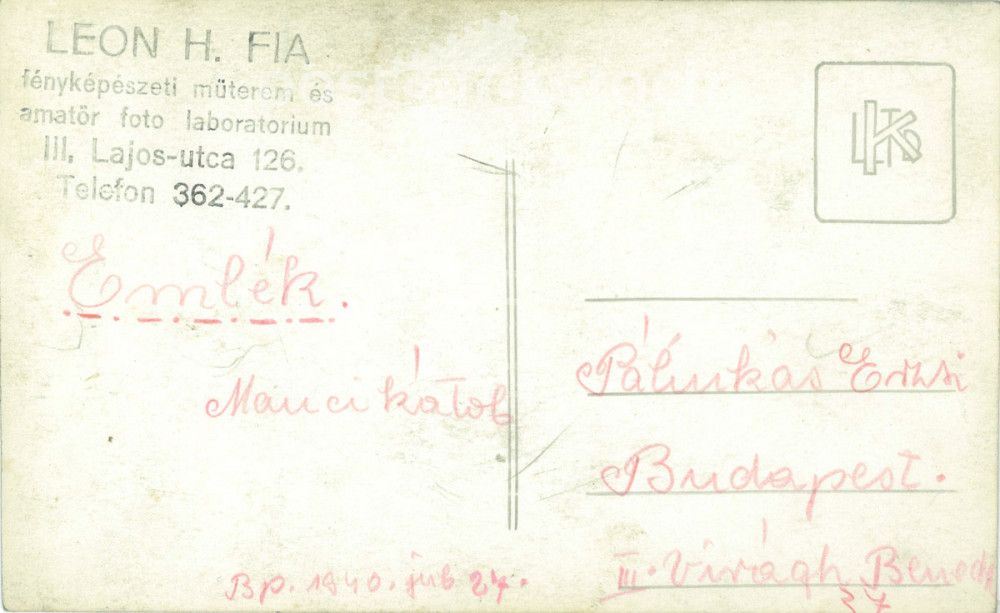 LEON H. FIA
fényképészeti műterem és
amatőr foto laboratorium
III, Lajos-utca 126.
Telefon 362-427.
Emlék.
Mancikától
Bp. 1940. júl. 24.
Pálinkás Erzsi
Budapest.
III. Virágh Bened